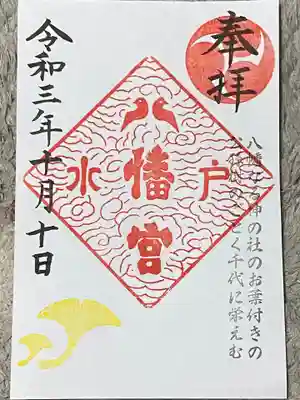 奉拝
八幡なる神の社のお葉付きの
ごとく千代に栄えむ
水戸
八幡宮
令和三年十月十日